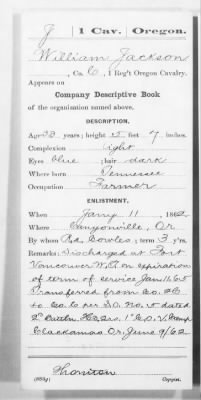 J | 1 Cav. | Oregon.
William Jackson
, Co. C, 1 Reg't Oregon Cavalry.
Appears on
Company Descriptive Book
of the organization named above.
DESCRIPTION.
Age 22 years; height 5 feet 7 inches.
Complexion light
Eyes blue; hair dark
Where born Tennessee
Occupation Farmer
ENLISTMENT.
When Jany 11, 1862
Where Canyonville, Or
By whom R.d. Cowles; term 3 y'rs.
Remarks: Discharged at Fort
Vancouver W.T. on expiration
of term of service Jan 11. 65
Transferred from Co.
to Co. C per S.O. No. 5 dated
Hdqrs. 1" C.O.V. Camp
Clackamas Or, June 9/62
Thornton
(383g) Copyist.